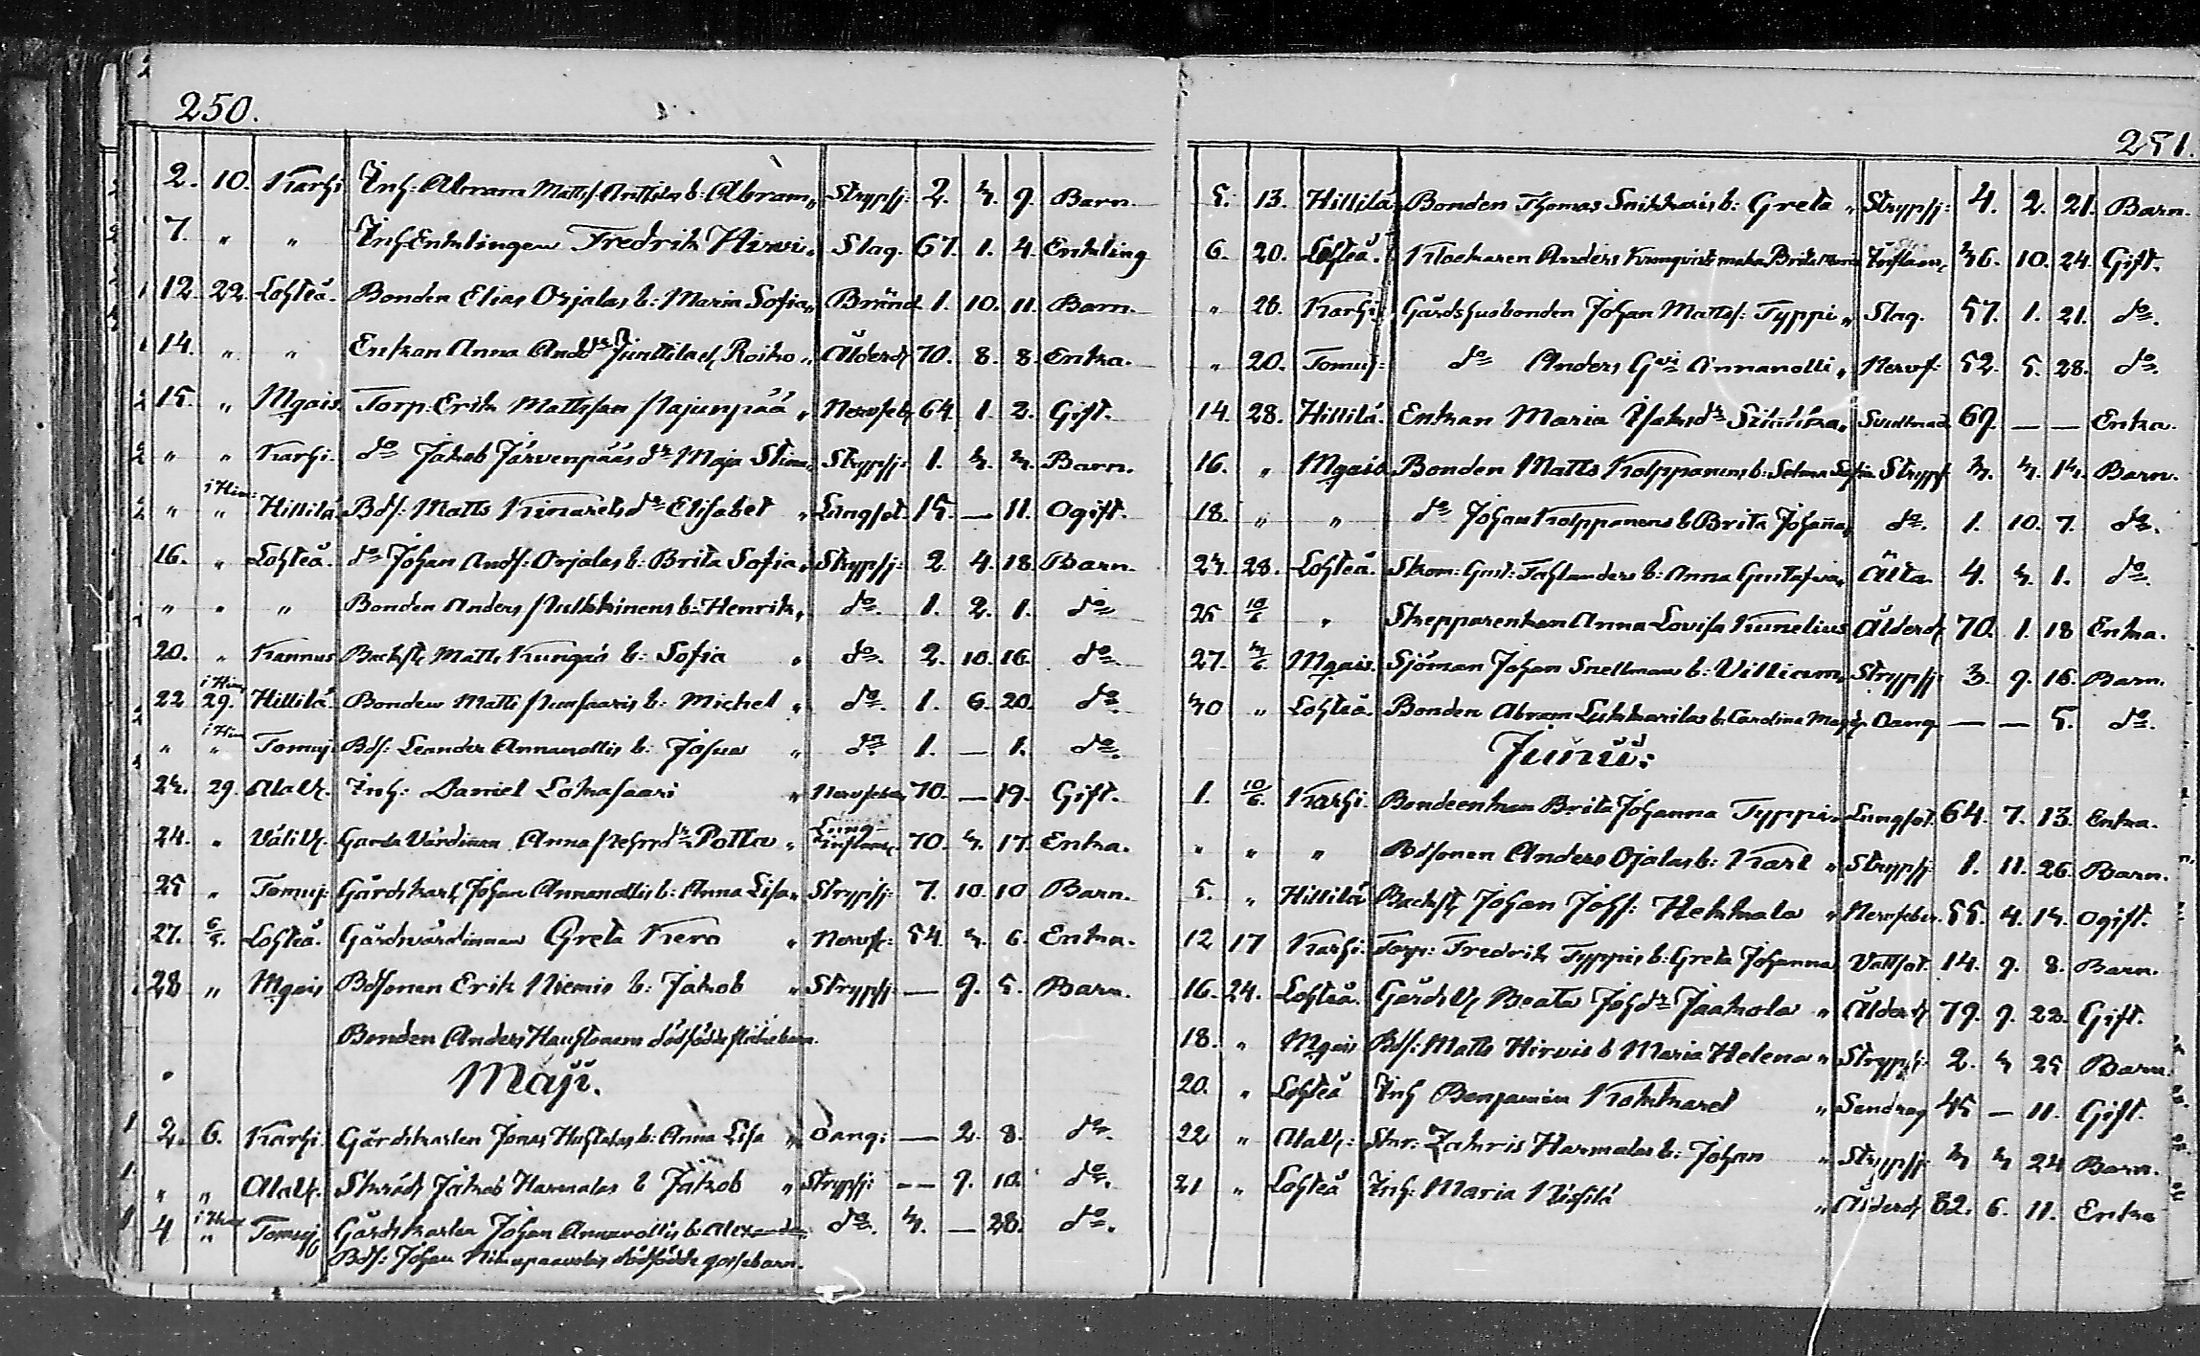 250.
2. 10. Karhi Inh: Abram Mattss. Anttilas b: Abram „ Strypsj: 2. 3. 9. Barn.
7. „ „ Inh Enklingen Fredrik Hirvi „ Slag. 67. 1. 4. Enkling
12. 22. Lohteå. Bonden Elias Orjalas b: Maria Sofia „ Bränd 1. 10. 11. Barn.
14. „ „ Enkan Anna Andrsdr Junttila Roiko „ Ålderd. 70. 8. 8. Enka.
15. „ Mgais. Torp: Erik Mattsson Najunpää „ Nervfeb. 64. 1. 2. Gift.
„ „ Karhi. do Jakob Järvenpääs dr Maja Stina „ Strypsj: 1. 3. 3. Barn.
„ i Him: „ Hillilä Bds: Matts Kinarets dr Elisabet „ Lungsot. 15. — 11. Ogift.
16. „ Lohteå. do Johan Ands: Orjalas b: Brita Sofia „ Strypsj: 2. 4. 18. Barn.
„ „ „ Bonden Anders Pulkkinens b: Henrik „ do. 1. 2. 1. do
20. „ Kannus Backst. Matts Kungas b: Sofia „ do. 2. 10. 16. do.
22 i Him 29. Hillilä Bonden Matts b: Michel „ do. 1. 6. 20. do.
„ i Him „ Tomuj. Bds: Leander Annanollis b: Josua „ do. 1. — 1. do.
23. 29. Alav. Inh: Daniel Lokasaari „ Nervfeber 70. — 19. Gift.
24. „ Väliv. Gårds Värdinnan Anna dr Polla „ Lung-inflam. 70. 3. 17. Enka.
25 „ Tomuj: Gårdskarl Johan Annanollis b: Anna Lisa „ Strypsj: 7. 10. 10 Barn.
27. 6/5. Lohteå. Gårdvärdinnan Greta Kero „ Nervf: 54. 3. 6. Enka.
28 „ Mgais Bdsonen Erik Niemis b: Jakob „ Strypsj: — 9. 5. Barn.
Bonden Anders dödfödda flickebarn.
Maji.
2. 6. Karhi. Gårdskarlen Jonas Huhtalas b: Anna Lisa „ Oang: — 2. 8. do.
„ „ Alav. Skräd. Jakob Harmalas b Jakob „ Strypsj: — 9. 10. do.
4 i Him „ Tomuj. Gårdskarlen Johan Annanollis b: Alexander do. 3. — 28. do.
Bds: Johan Niknpaavolas dödfödde gossebarn.
251.
5. 13. Hillilä Bonden Thomas Snikkaris b: Greta „ Strypsj: 4. 2. 21. Barn.
6. 20. Lohteå. Klockaren Anders Kronqvists maka Brita Maria Inflam. 36. 10. 24. Gift.
„ 26. Karhi Gårdshusbonden Johan Mattss: Typpi „ Slag. 57. 1. 21. do.
„ 20. Tomuj: do Anders Annanolli „ Nervf. 52. 5. 28. do.
14. 28. Hillilä. Enkan Maria Isaksdr „ 69. — — Enka.
16. „ Mgais Bonden Matts Kolppanens b: Selma Sofia Strypsj 3. 3. 13. Barn.
18. „ „ do Johan Kolppanens b Brita Johanna „ do. 1. 10. 7. do.
23. 28. Lohteå. Skom: Gust: Fahlanders b: Anna Gustafva „ Älta. 4. 3. 1. do.
25 10/6 „ Skepparenkan Anna Lovisa Kunelius Ålderd. 70. 1. 18 Enka.
27. 3/6 Mgais. Sjöman Johan Snellmans b: Villiam „ Strypsj: 3. 9. 16. Barn.
30 „ Lohteå. Bonden Abram Lukkarilas b. Carolina Oang — — 5. do.
Junii:
1. 10/6. Karhi. Bondeenkan Brita Johanna Typpi „ Lungsot. 64. 7. 13. Enka.
„ „ „ Bdsonen Anders Ojalas b: Karl „ Strypsj: 1. 11. 26. Barn.
5. „ Hillilä Backst. Johan Johs: Hekkala „ Nervfeber. 55. 4. 13. Ogift.
12 17 Karhi. Torp: Fredrik Typpis b: Greta Johanna Vattsot. 14. 9. 8. Barn.
16. 24. Lohteå. Gårds V. Beata Johdr Jaakola „ Ålderd. 79. 9. 22. Gift.
18. „ Mgais Bds: Matts Hirvis b Maria Helena „ Strypsj: 2. 3 25 Barn.
20. „ Lohteå Inh Benjamin Kokkaret „ Sendrag 45 — 11. Gift.
22 „ Alav: Skr: Zakris Harmalas b: Johan „ Strypsj: 3 3 24 Barn.
21 „ Lohteå Inh: Maria „ Ålderd. 82. 6. 11. Enka